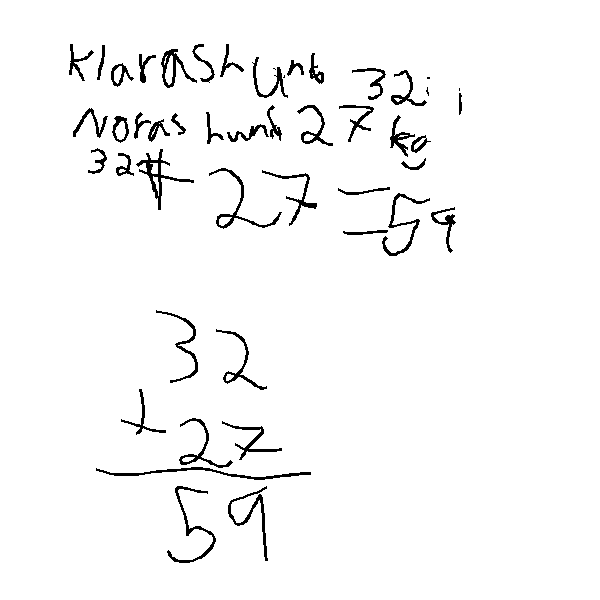 Klaras hund 32
Noras hund 27 kg
32 + 27 = 59
32
+ 27
59